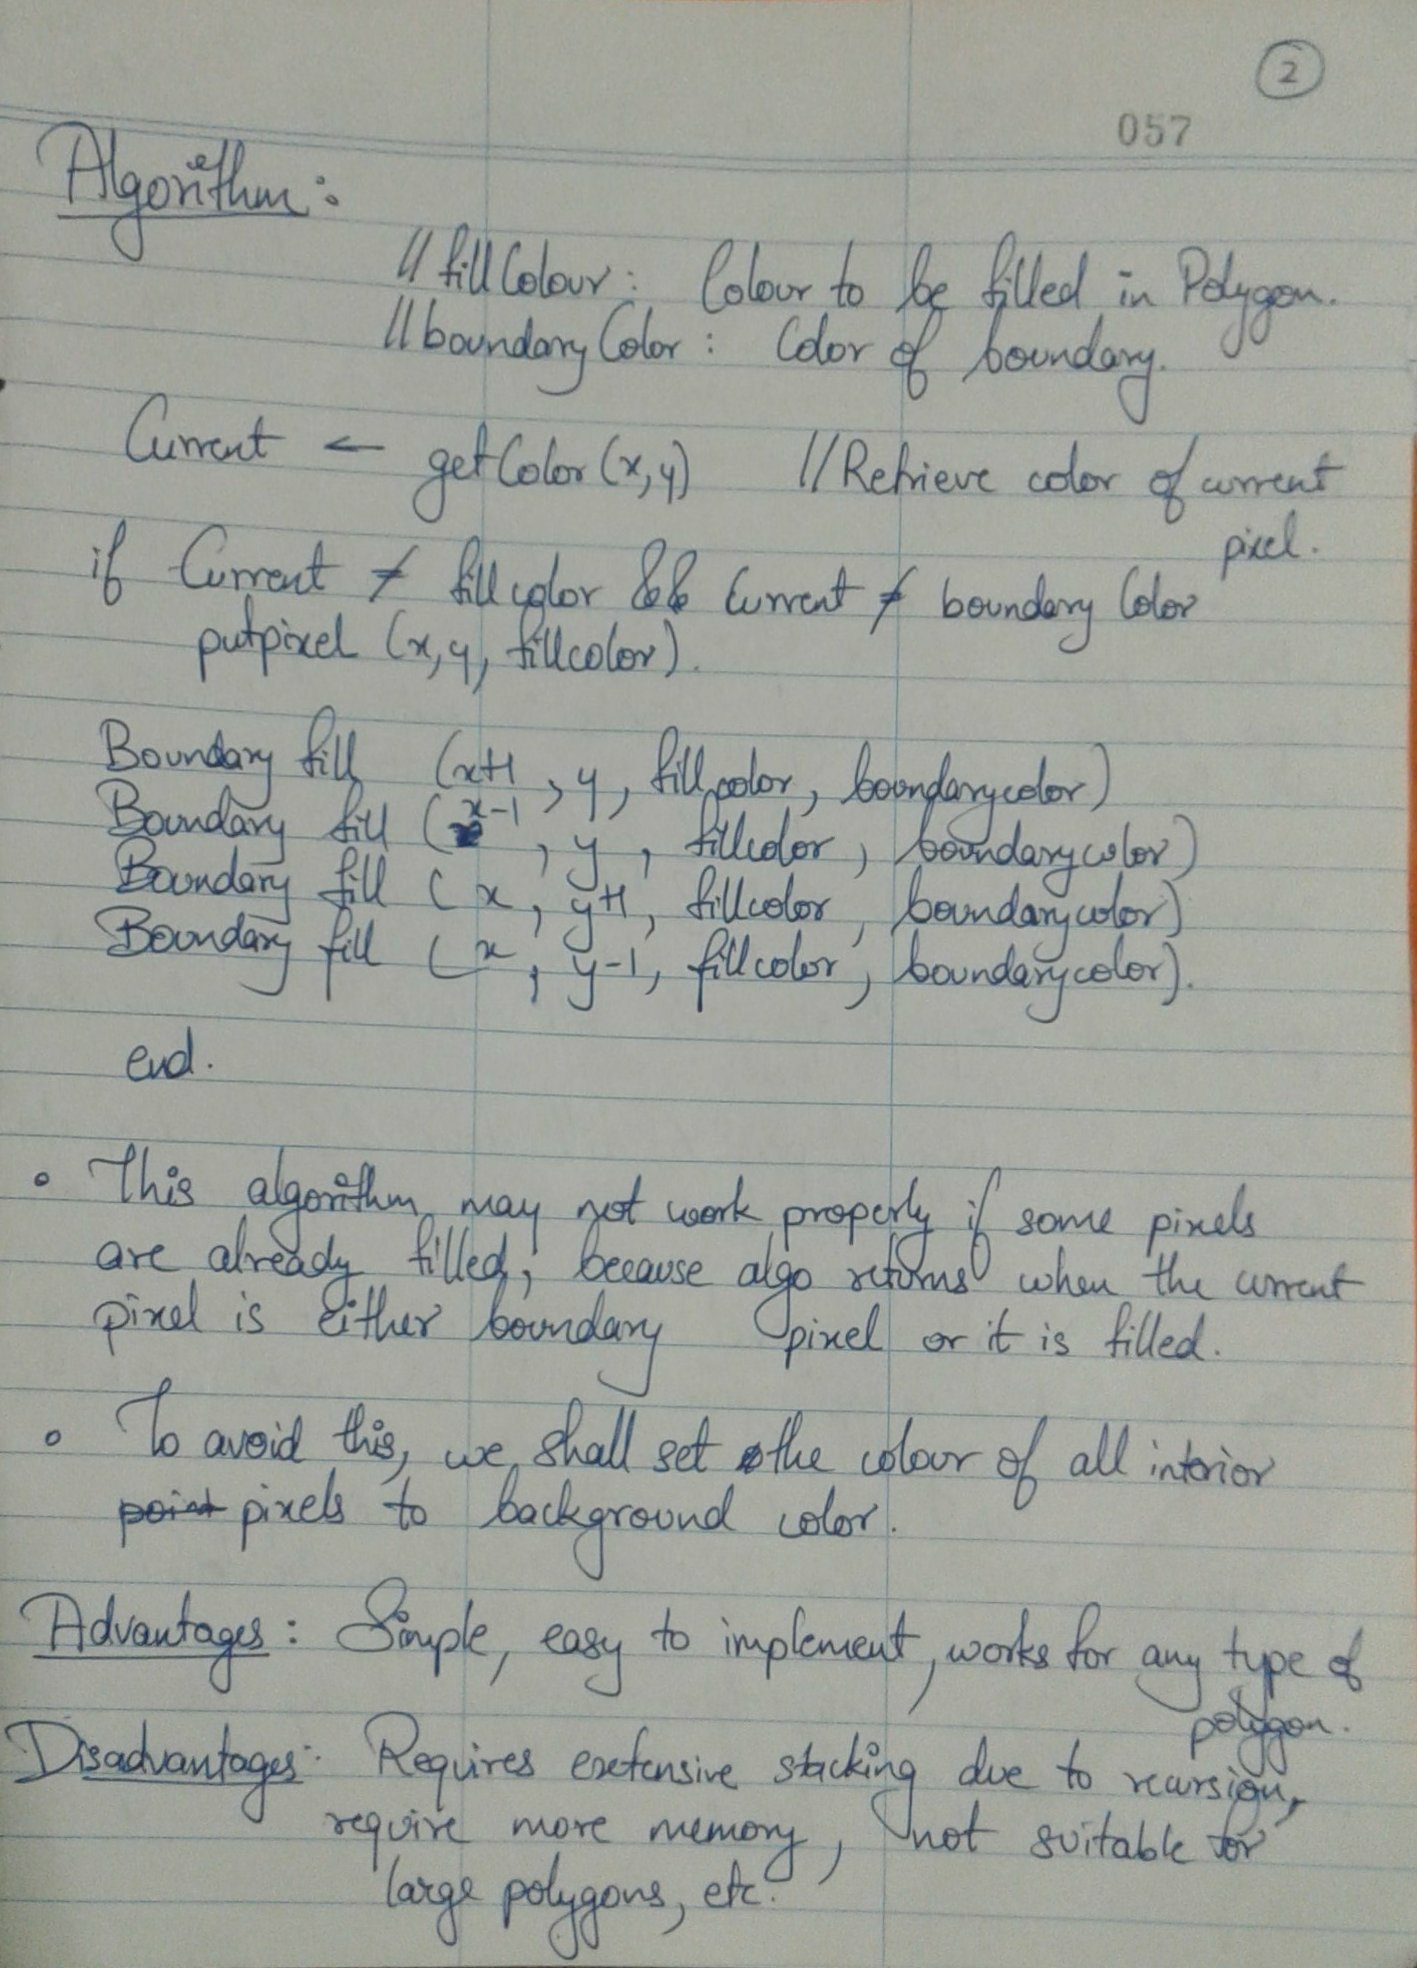 2
057
Algorithm:
// fillColour: Colour to be filled in Polygon.
// boundaryColor: Color of boundary.
Current ← getColor(x,y) // Retrieve color of current
pixel.
if Current ≠ fillcolor && Current ≠ boundary Color
putpixel (x,y, fillcolor).
Boundary fill (x+1, y, fillcolor, boundarycolor)
Boundary fill (x-1, y, fillcolor, boundarycolor)
Boundary fill (x, y+1, fillcolor, boundarycolor)
Boundary fill (x, y-1, fillcolor, boundarycolor).
end.
• This algorithm may not work properly if some pixels
are already filled, because algo returns when the current
pixel is either boundary pixel or it is filled.
• To avoid this, we shall set the colour of all interior
point pixels to background color.
Advantages: Simple, easy to implement, works for any type of
polygon.
Disadvantages: Requires extensive stacking due to recursion,
require more memory, not suitable for
large polygons, etc.